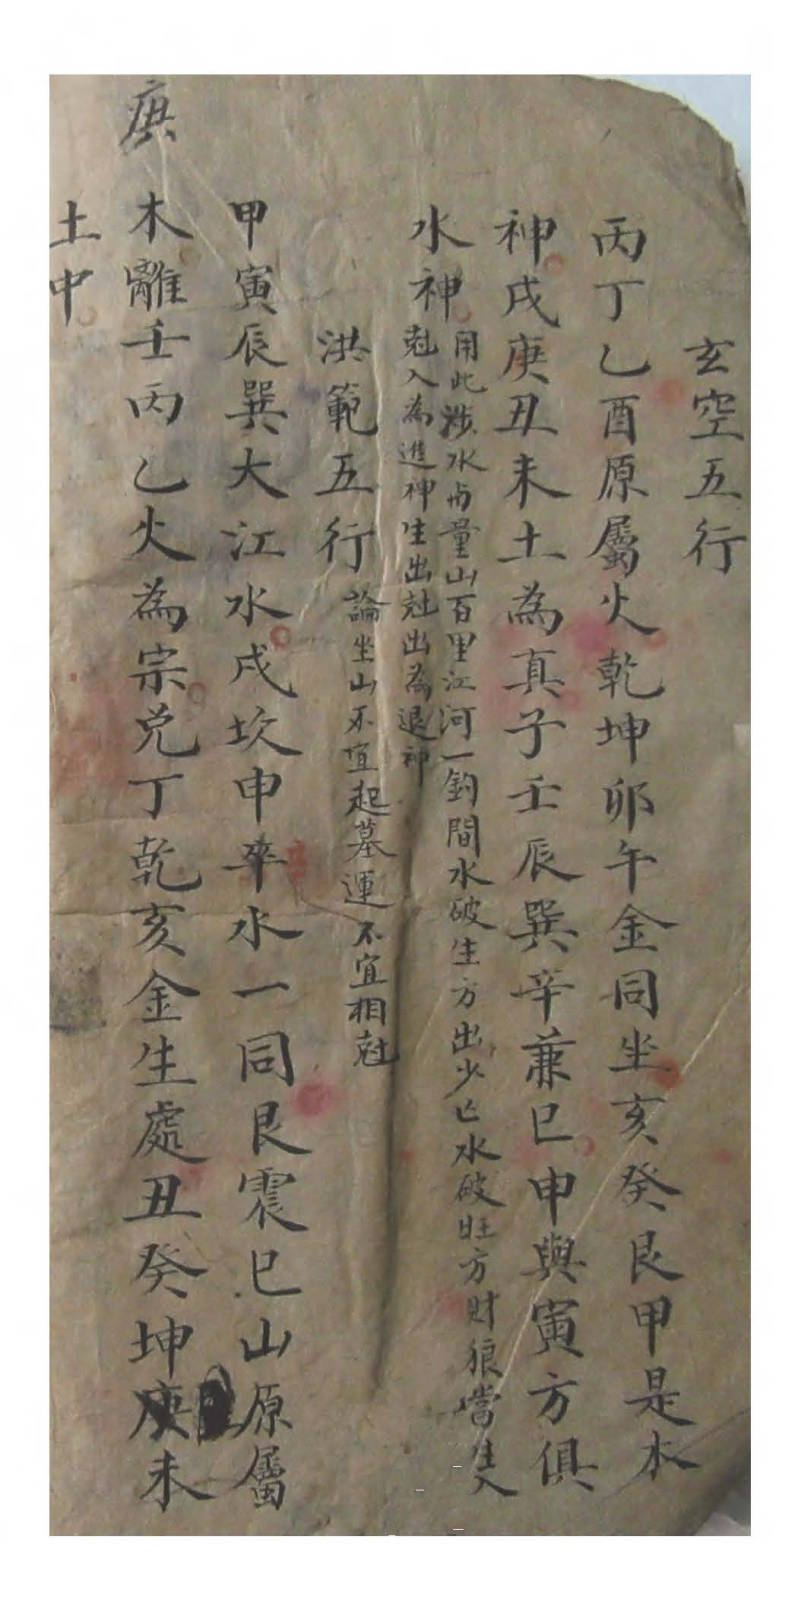 玄空五行
丙丁乙酉原屬火乾坤卯午金同坐亥癸艮甲是木
神戌庚丑未土為真子壬辰巽辛兼巳申與寅方俱
水神
用此涉水步量山百里江河一鈞間水破生方出少亡水破旺方財狼當生入
尅入為進神生出尅出為退神
洪範五行
論坐山不宜起墓運不宜相尅
甲寅辰巽大江水戌坎申辛水一同艮震巳山原屬
木離壬丙乙火為宗兌丁乾亥金生處丑癸坤庚未
庚
土中